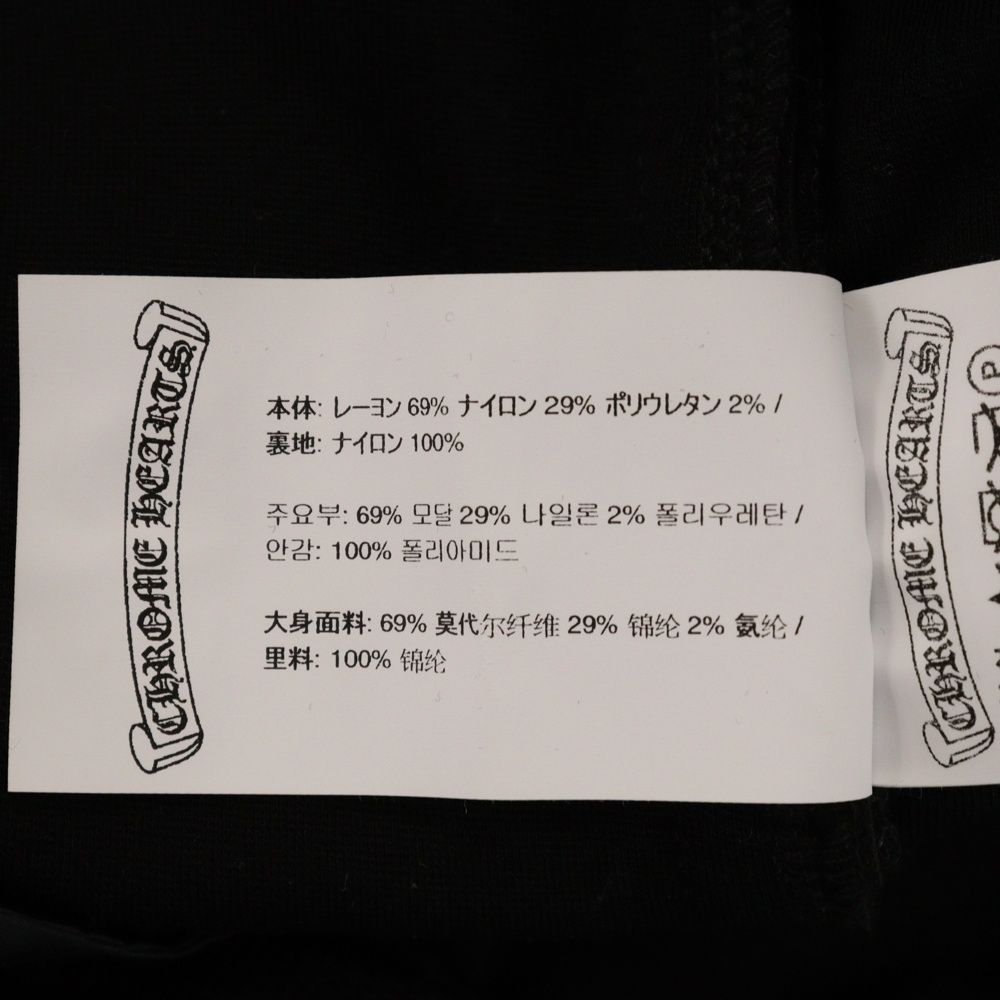 CHROME HEARTS
本体: レーヨン 69% ナイロン 29% ポリウレタン 2% /
裏地: ナイロン 100%
주요부: 69% 모달 29% 나일론 2% 폴리우레탄 /
안감: 100% 폴리아미드
大身面料: 69% 莫代尔纤维 29% 锦纶 2% 氨纶 /
里料: 100% 锦纶
CHROME HEARTS
P